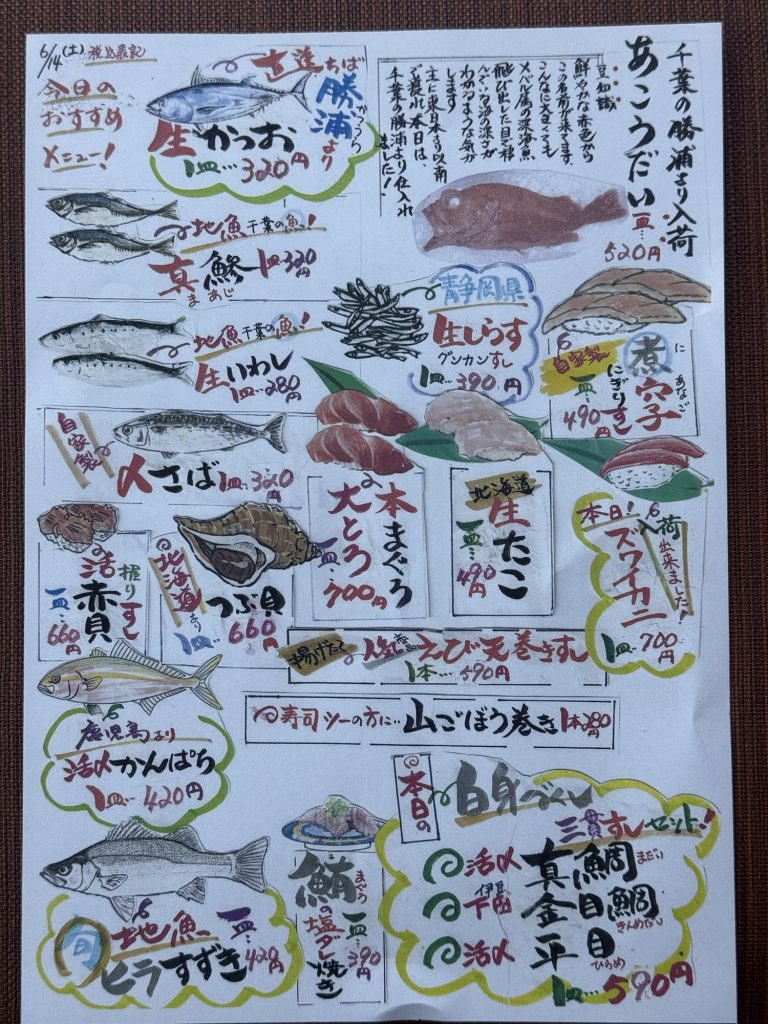 6/14(土) 税込表記
今日の
おすすめ
メニュー!
直送 ちば
勝浦より
かつうら
生かつお
1皿…320円
千葉の勝浦より入荷
あこうだい
一皿…
520円
豆知識
鮮やかな赤色から
この名前が来てます
こんなに大きくても
メバル属の深海魚
飛び出した目と様
んでいる海の深さが
わかるような気が
します
主に東日本より以南
で獲れ本日は、
千葉の勝浦より仕入れ
ました!
地魚 千葉の魚!
真鯵 1皿320円
まあじ
地魚 千葉の魚!
生いわし
1皿…280円
静岡県
生しらす
グンカンすし
1皿…390円
自家製
煮穴子
に あなご
にぎりすし
一皿…490円
自家製
〆さば 1皿…320円
本まぐろ
大とろ
一皿…700円
北海道
生たこ
一皿…490円
本日!
入荷出来ました!
ズワイカニ
1皿…700円
握りすし
活赤貝
一皿…660円
北海道より
つぶ貝
1皿…660円
揚げたて
人気
えび天巻きすし
1本…590円
寿司ツーの方に… 山ごぼう巻き 1本280円
鹿児島より
活〆かんぱち
1皿…420円
旬
地魚
ヒラすずき
一皿…420円
鮪の塩タレ焼き
まぐろ
一皿…390円
本日の
白身づくし
三貫すしセット!
活〆 真鯛 まだい
伊豆
下田 金目鯛 きんめだい
活〆 平目 ひらめ
1皿…590円